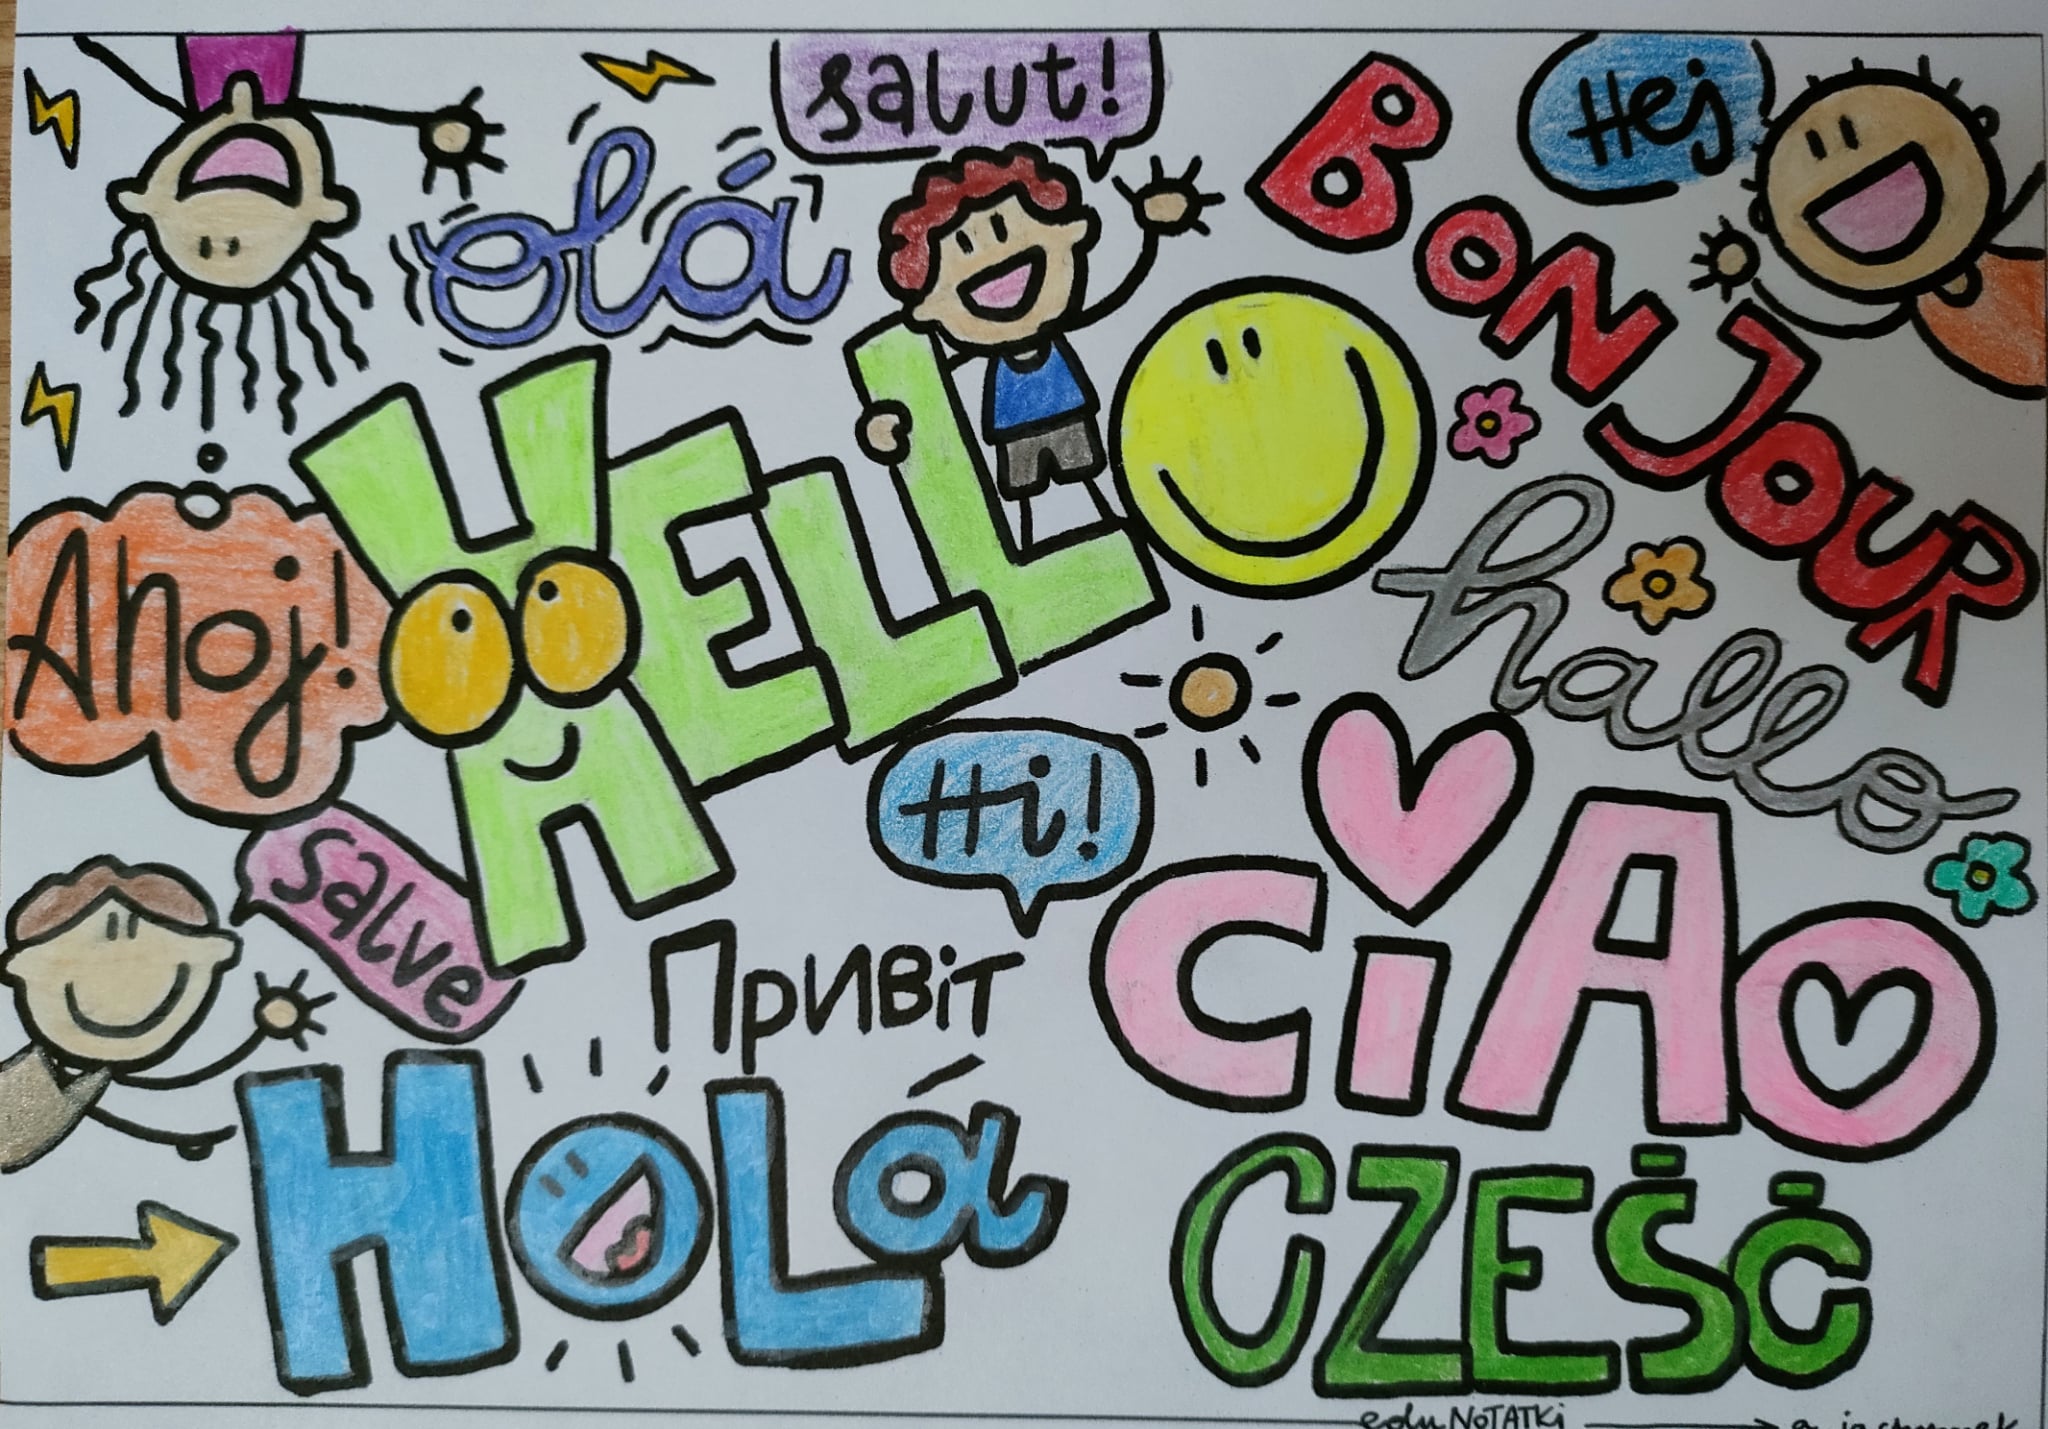 salut!
Hej
olá
BONJOUR
HELLO
Ahoj!
hallo
Hi!
salve
Привіт
CIAO
HOLá
CZEŚĆ
edu NOTATKI